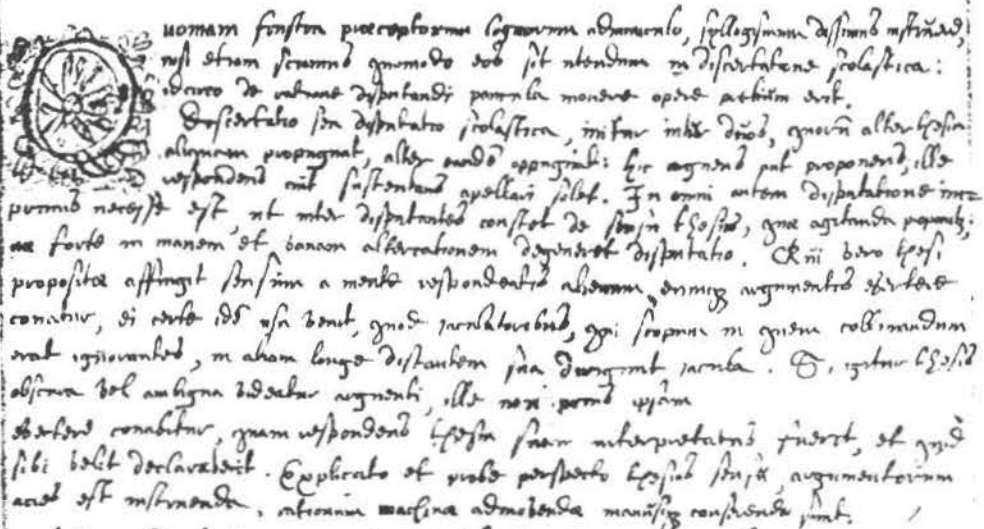 Quoniam frustra praeceptorum logicorum adminiculo, syllogismum discimus instruere,
nisi etiam sciamus quomodo eos sit utendum in discertatione scolastica:
idcirco de ratione disputandi paucula monere opere pretium erit.
Discertatio seu disputatio scolastica, initur inter duos, quorũ alter thesim
aliquam propugnat, alter eandẽ oppugnat: hic arguens aut proponens, ille
respondens aut sustentans apellari solet. In omni autem disputatione im-
primis necesse est, ut inter disputantes constet de sensu thesis, quae agitanda
ne forte in inanem et vanam altercationem degeneret disputatio. Qui vero thesi
propositae affingit sensum a mente respondentis alienum, eumq argumentis evertere
conatur, ei certe idẽ usu venit, quod jaculatoribus, qui scopum in quem collimandum
erat ignorantes, in alium longe distantem sua dirigunt jacula. Si igitur thesis
obscura vel ambigua videatur arguenti, ille non prius ipsam
evertere conabitur, quam respondens thesim suam interpretatus fuerit, et quid
sibi velit declaraverit. Explicato et probe perspecto thesios sensu, argumentorum
acies est instruenda, machinae admovendae manusq conserendae sunt.